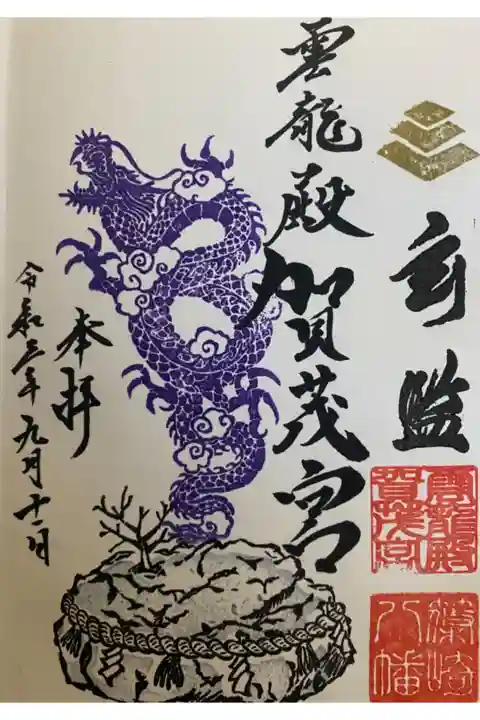 雲龍殿賀茂宮
雲龍殿
賀茂宮
篠崎
八幡
本拝
令和三年九月十一日